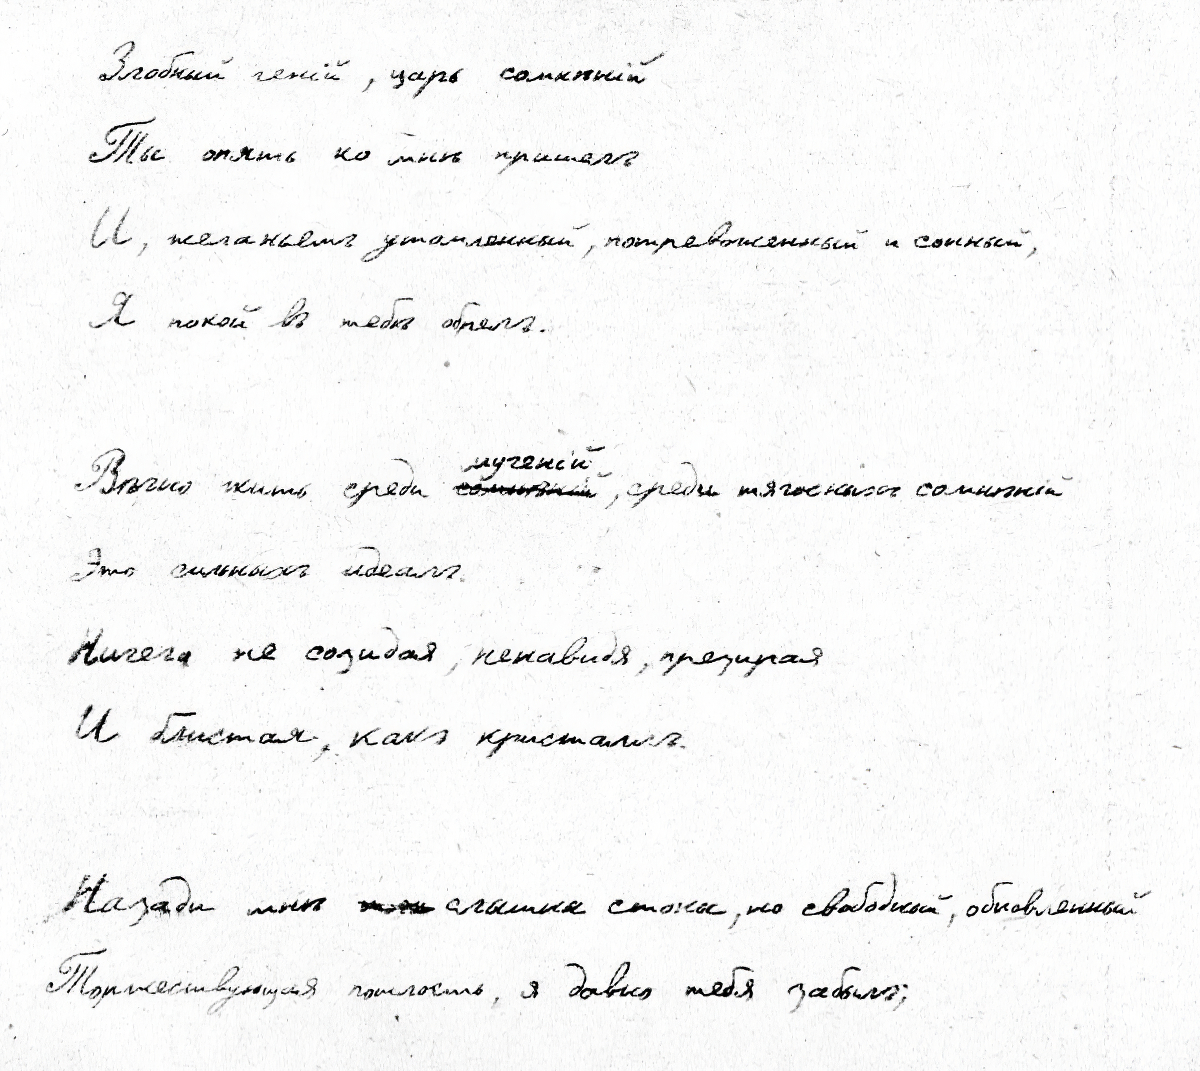 Злобный геній, царь сомнѣній
Ты опять ко мнѣ пришелъ
И, желаньемъ утомленный, потревоженный и сонный,
Я покой въ тебѣ обрелъ.
мученій
Вѣчно жить среди сомнѣній, среди тягосныхъ сомнѣній
Это сильныхъ идеалъ.
Ничего не созидая, ненавидя, презирая
И блистая, какъ кристаллъ.
Назади мнѣ слышны стоны, но свободный, обновленный
Торжествующая пошлость, я давно тебя забылъ;